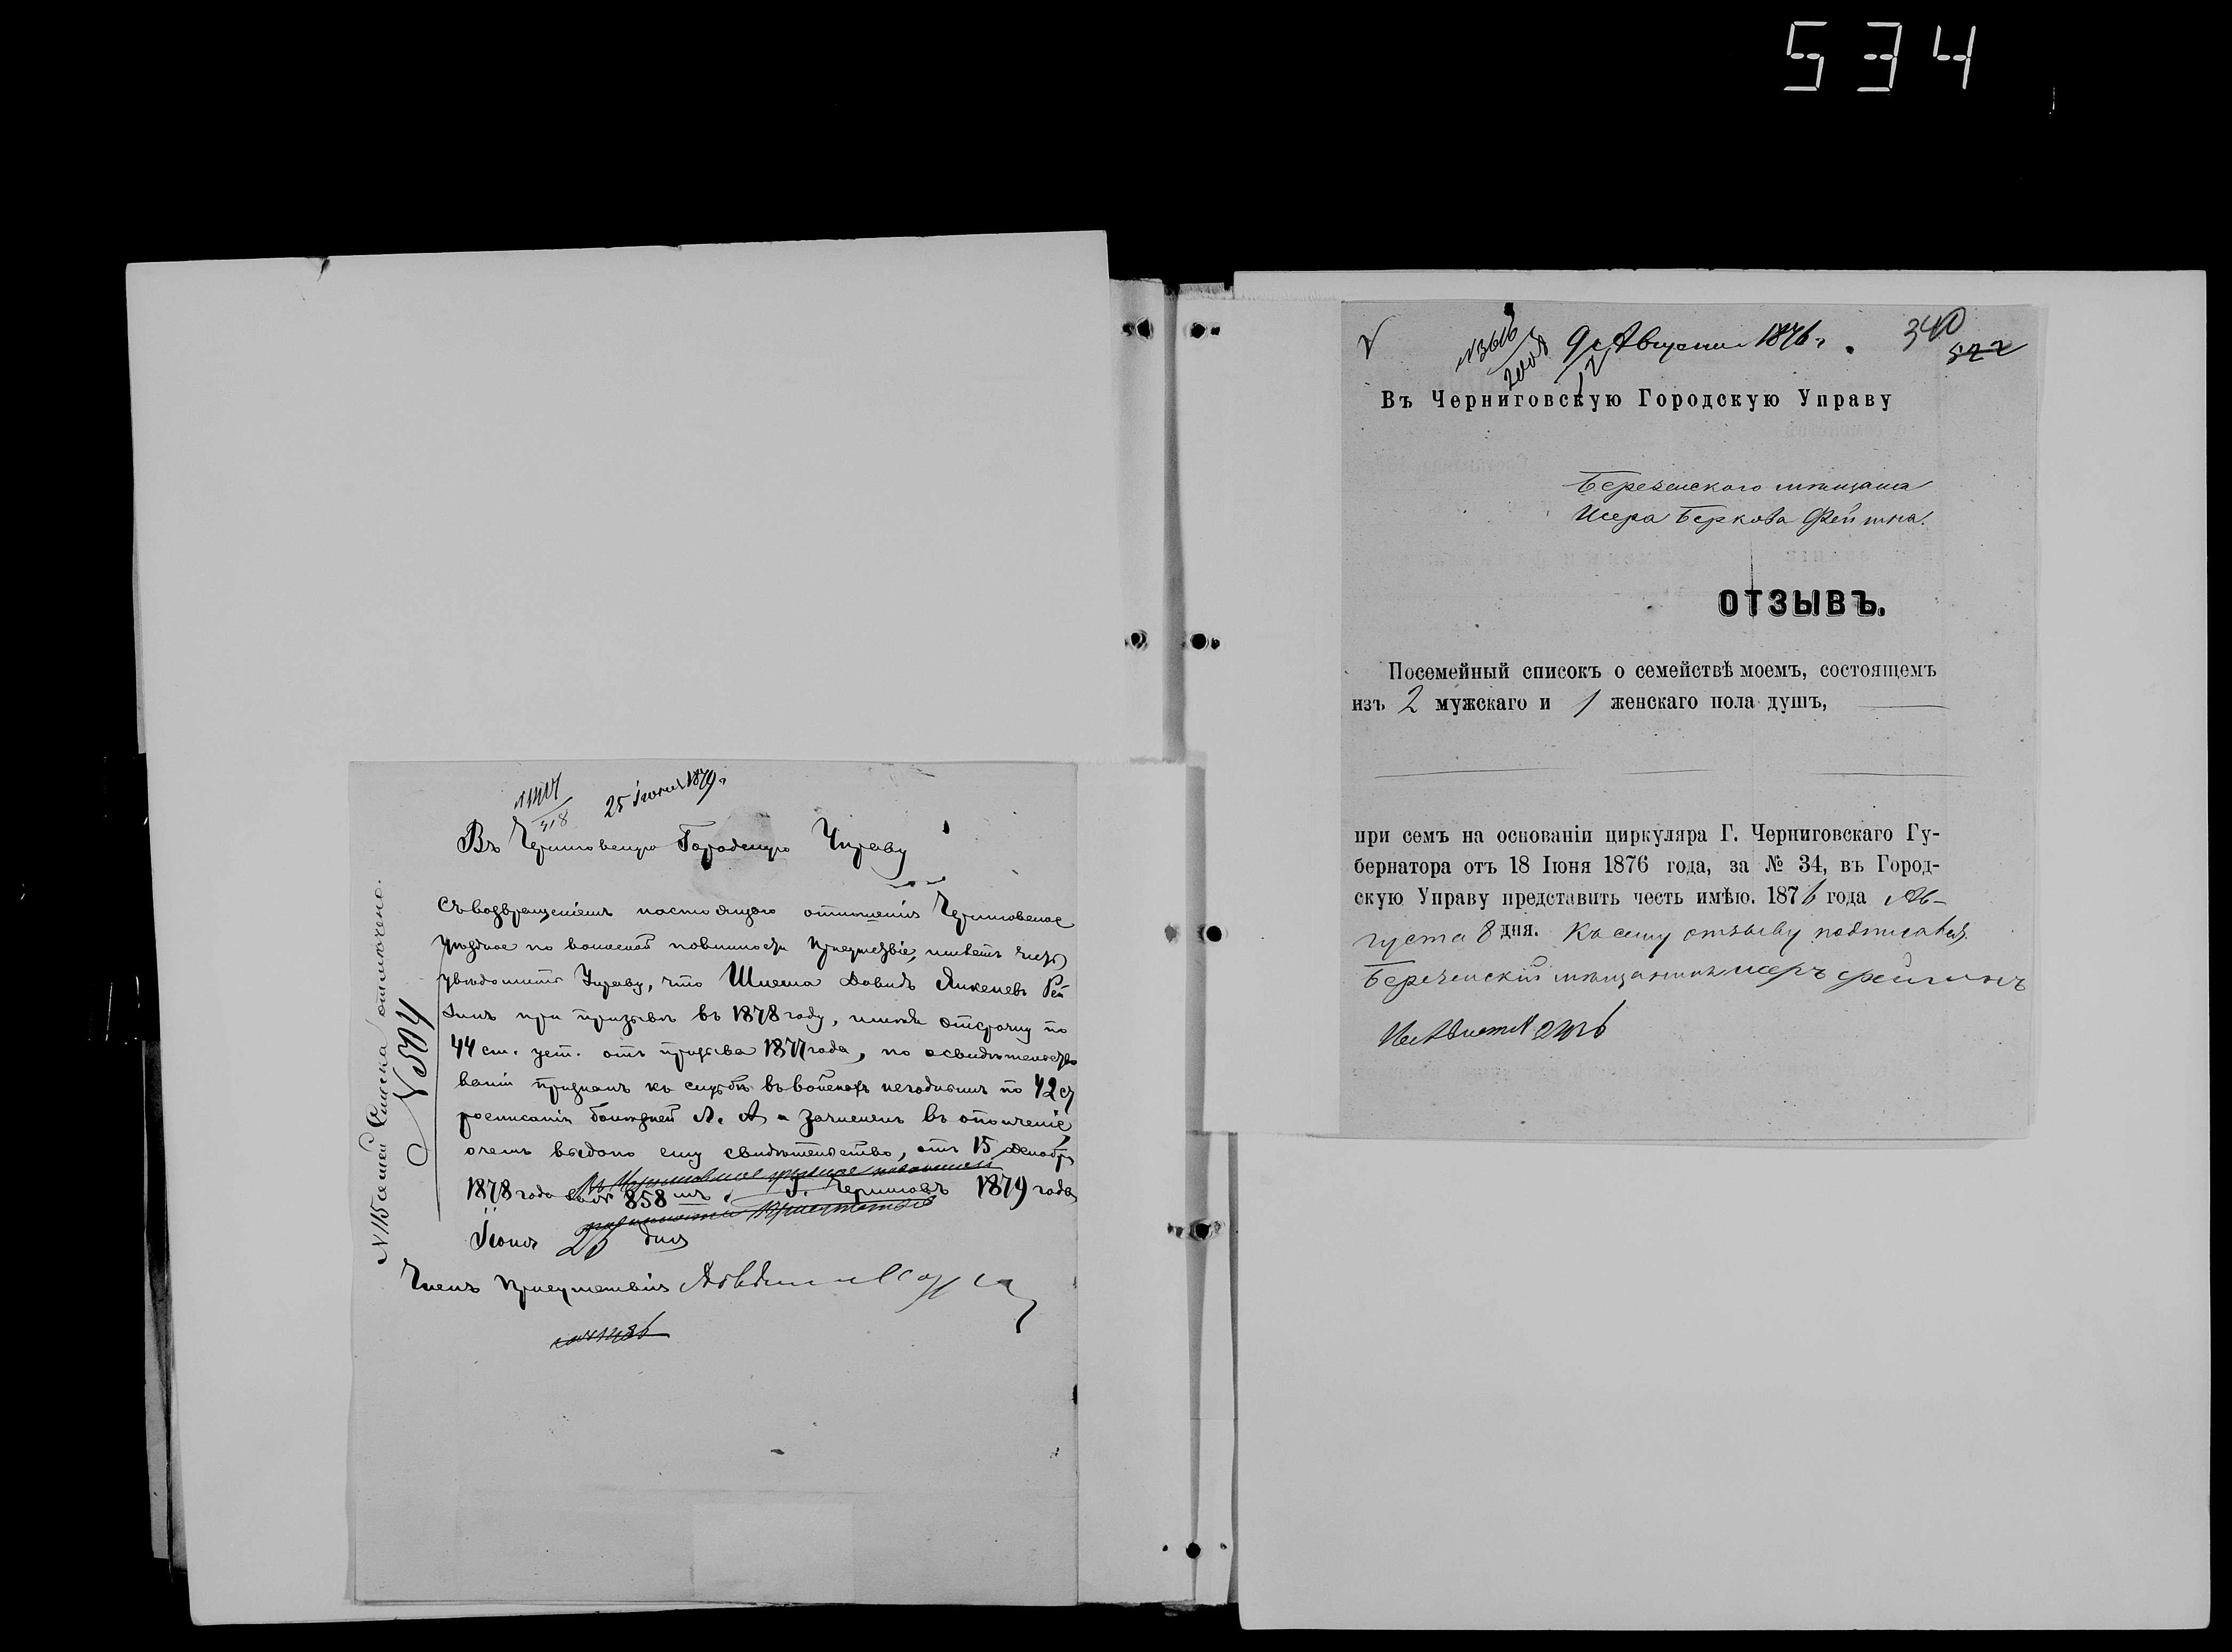 534
25 Іюня 1879 г.
Въ Черниговскую Городскую Управу
Съ возвращеніемъ настоящаго отношенія Черниговское
уѣздное по воинской повинности Присутствіе, имѣетъ честь
увѣдомить Управу, что Шлема Давидъ Янкелевъ Рей
при призывѣ въ 1878 году, имѣя отсрочку по
44 ст. уст. отъ призыва 1877 года, по освидѣтельство
ваніи признанъ къ службѣ въ войскахъ негоднымъ по 42 ст
росписанія болѣзней Л. А и зачисленъ въ ополченіе
о чемъ выдано ему свидѣтельство, отъ 15 Декабря
1878 года за № 858 мъ. Г. Черниговъ 1879 года
Іюня 25 дня
Членъ Присутствія
№ 115 Списка отмечено.
№ 594
9 Августа 1876 г.
340
522
Въ Черниговскую Городскую Управу
Березенского мѣщанина
Исера Беркова Фейгина.
ОТЗЫВЪ.
Посемейный списокъ о семействѣ моемъ, состоящемъ
изъ 2 мужскаго и 1 женскаго пола душъ,
при семъ на основаніи циркуляра Г. Черниговскаго Гу-
бернатора отъ 18 Іюня 1876 года, за № 34, въ Город-
скую Управу представить честь имѣю. 1876 года Ав-
густа 8 дня. Къ сему отзыву подписался
Березенский мѣщанинъ исеръ фейгинъ